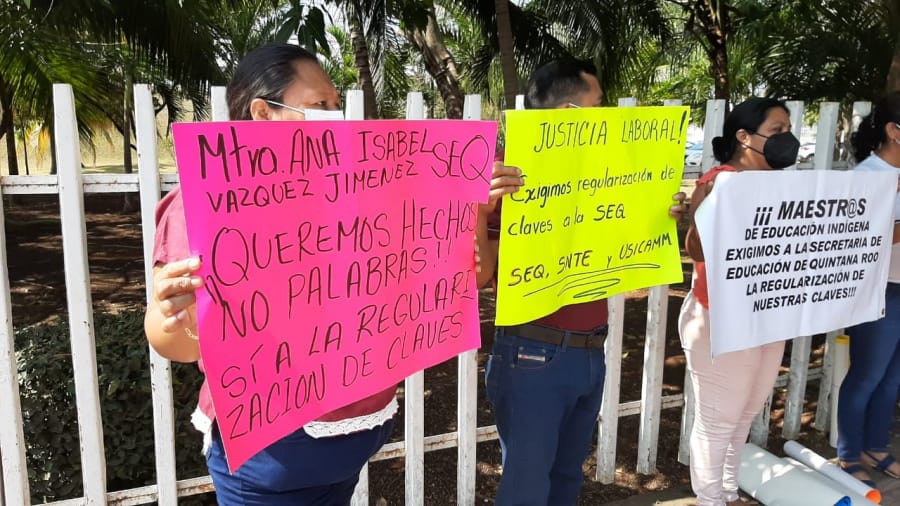 Mtra. ANA ISABEL SEQ
VAZQUEZ JIMENEZ
¡QUEREMOS HECHOS
NO PALABRAS!!
SÍ A LA REGULARI
ZACIÓN DE CLAVES
JUSTICIA LABORAL!
Exigimos regularización de
claves a la SEQ
SEQ, SNTE y USICAMM
¡¡¡ MAESTR@S
DE EDUCACIÓN INDÍGENA
EXIGIMOS A LA SECRETARIA DE
EDUCACIÓN DE QUINTANA ROO
LA REGULARIZACIÓN DE
NUESTRAS CLAVES!!!